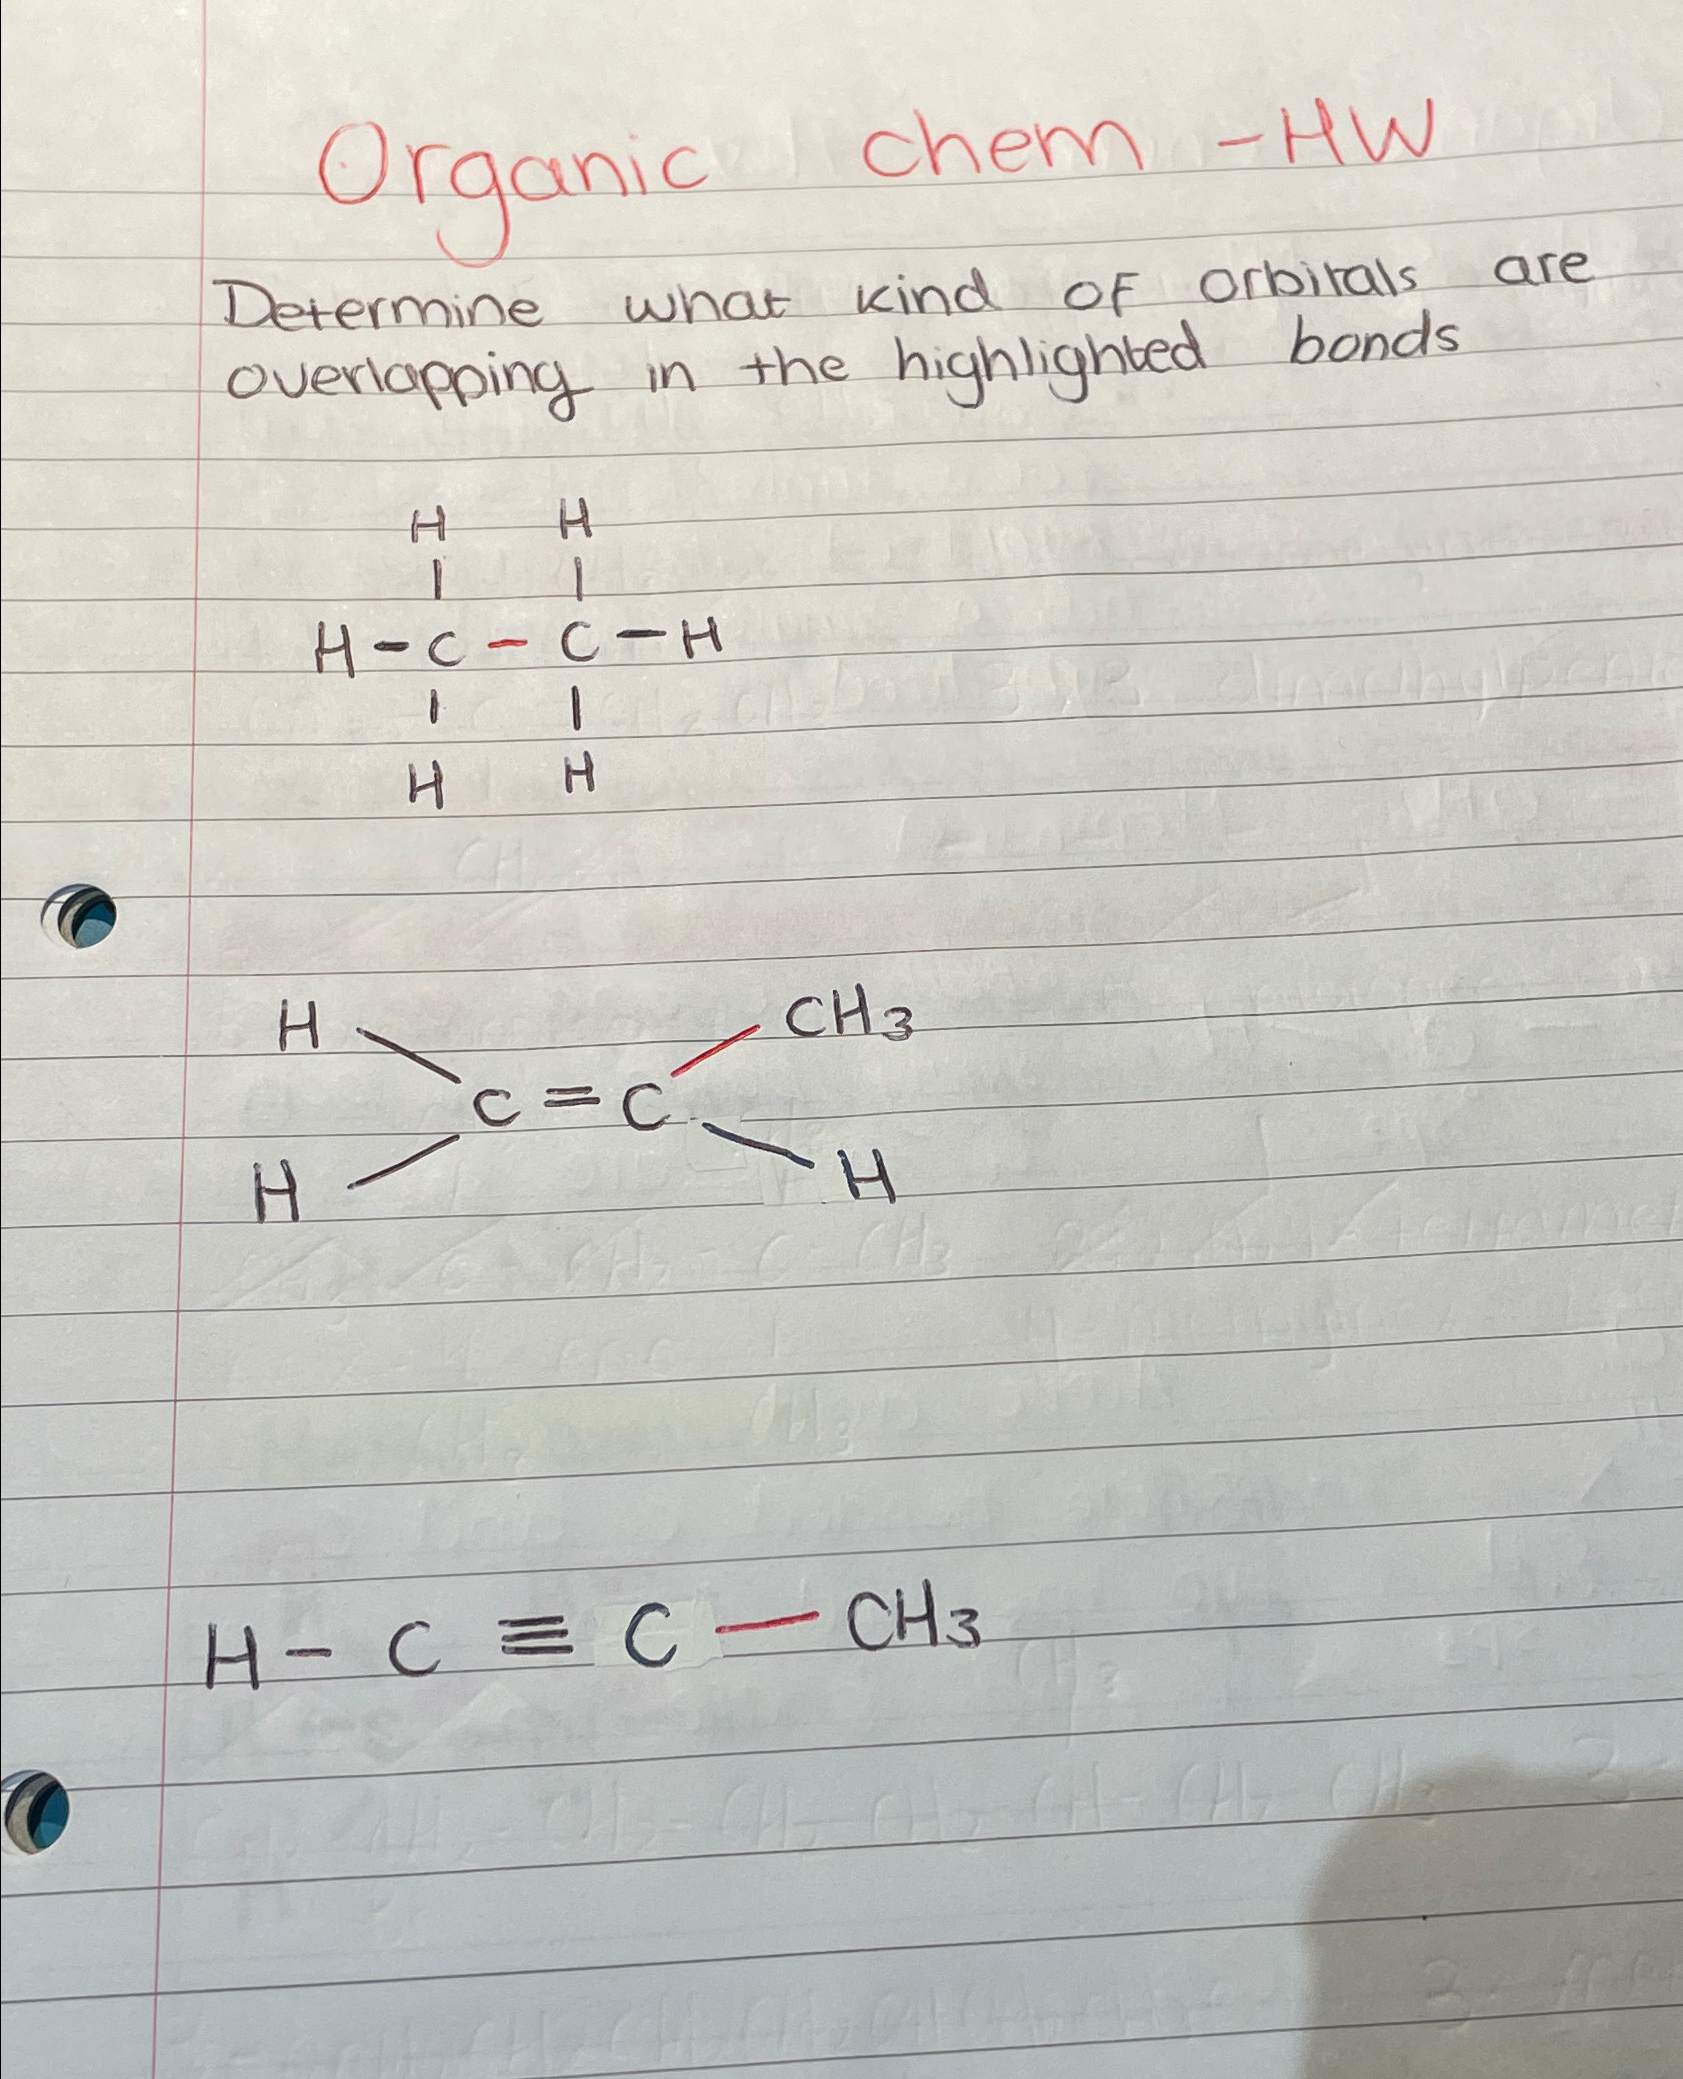 Organic chem - HW
Determine what kind of orbitals are
overlapping in the highlighted bonds
H H
| |
H - C - C - H
| |
H H
H CH3
C = C
H H
H - C ≡ C - CH3